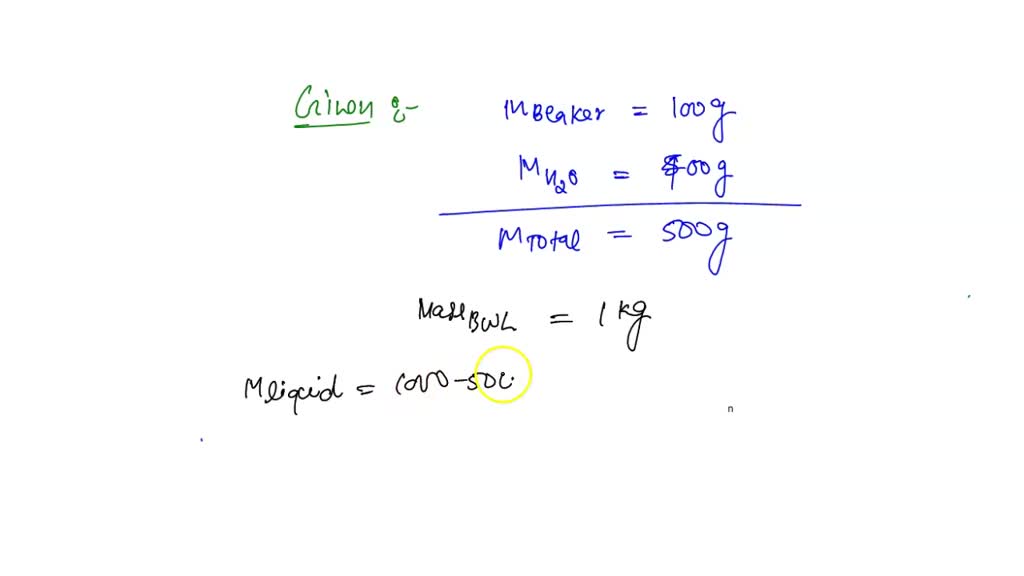 Given :-
MBeaker = 100g
MH2O = 400g
MTotal = 500g
MassBWL = 1 kg
Mliqcid = 1000-500
n